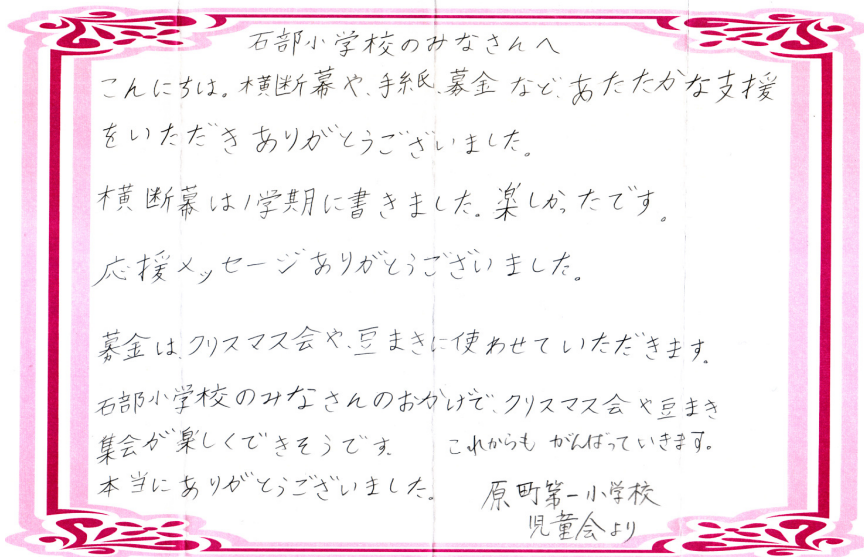 石部小学校のみなさんへ
こんにちは。横断幕や、手紙、募金など、あたたかな支援
をいただきありがとうございました。
横断幕は1学期に書きました。楽しかったです。
応援メッセージありがとうございました。
募金はクリスマス会や、豆まきに使わせていただきます。
石部小学校のみなさんのおかげで、クリスマス会や豆まき
集会が楽しくできそうです。 これからもがんばっていきます。
本当にありがとうございました。
原町第一小学校
児童会より